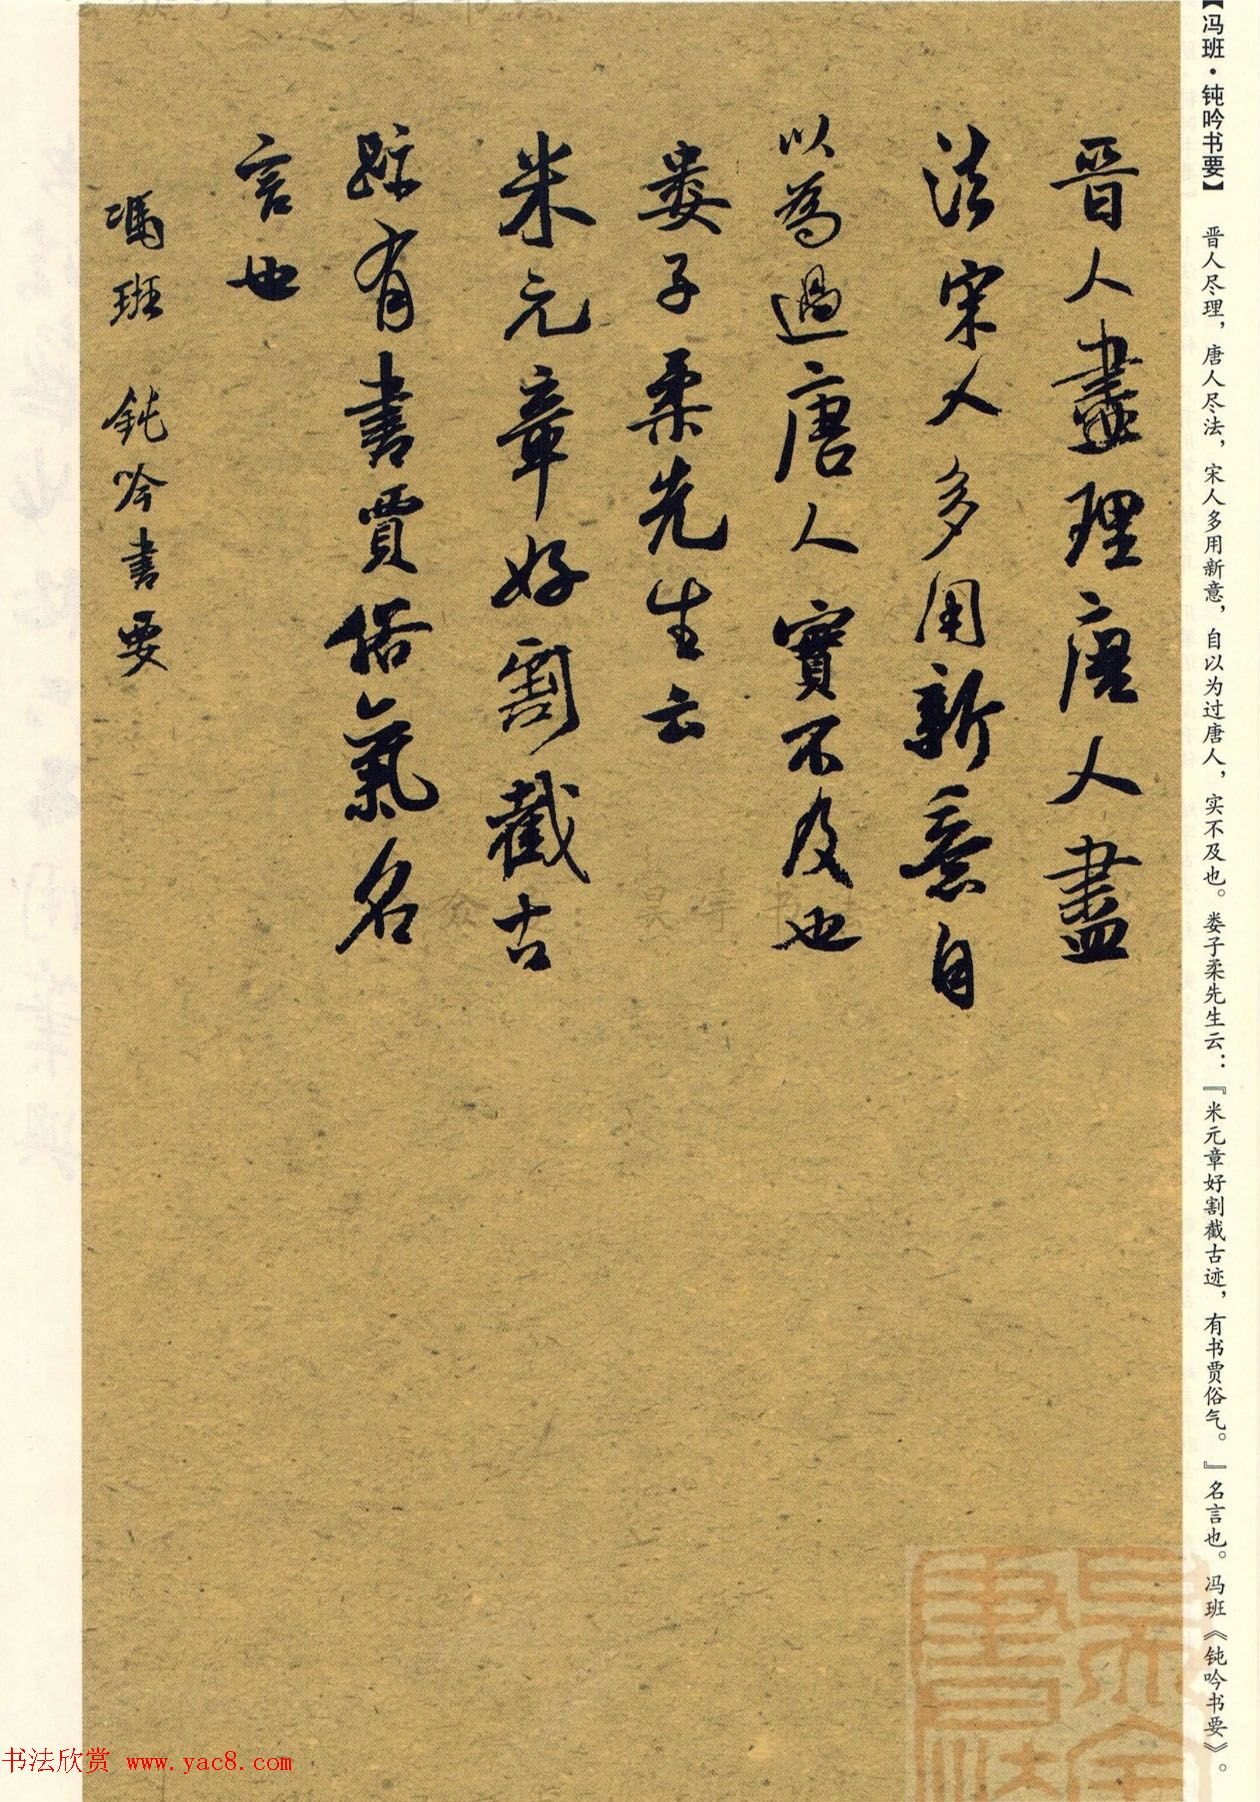 【冯班·钝吟书要】 晋人尽理，唐人尽法，宋人多用新意，自以为过唐人，实不及也。娄子柔先生云：『米元章好割截古迹，有书贾俗气。』名言也。冯班《钝吟书要》。
晋人盡理唐人盡
法宋人多用新意自
以為過唐人實不及也
娄子柔先生云
米元章好割截古
跡有書賈俗氣名
言也
馮班 鈍吟書要
书法欣赏 www.yac8.com